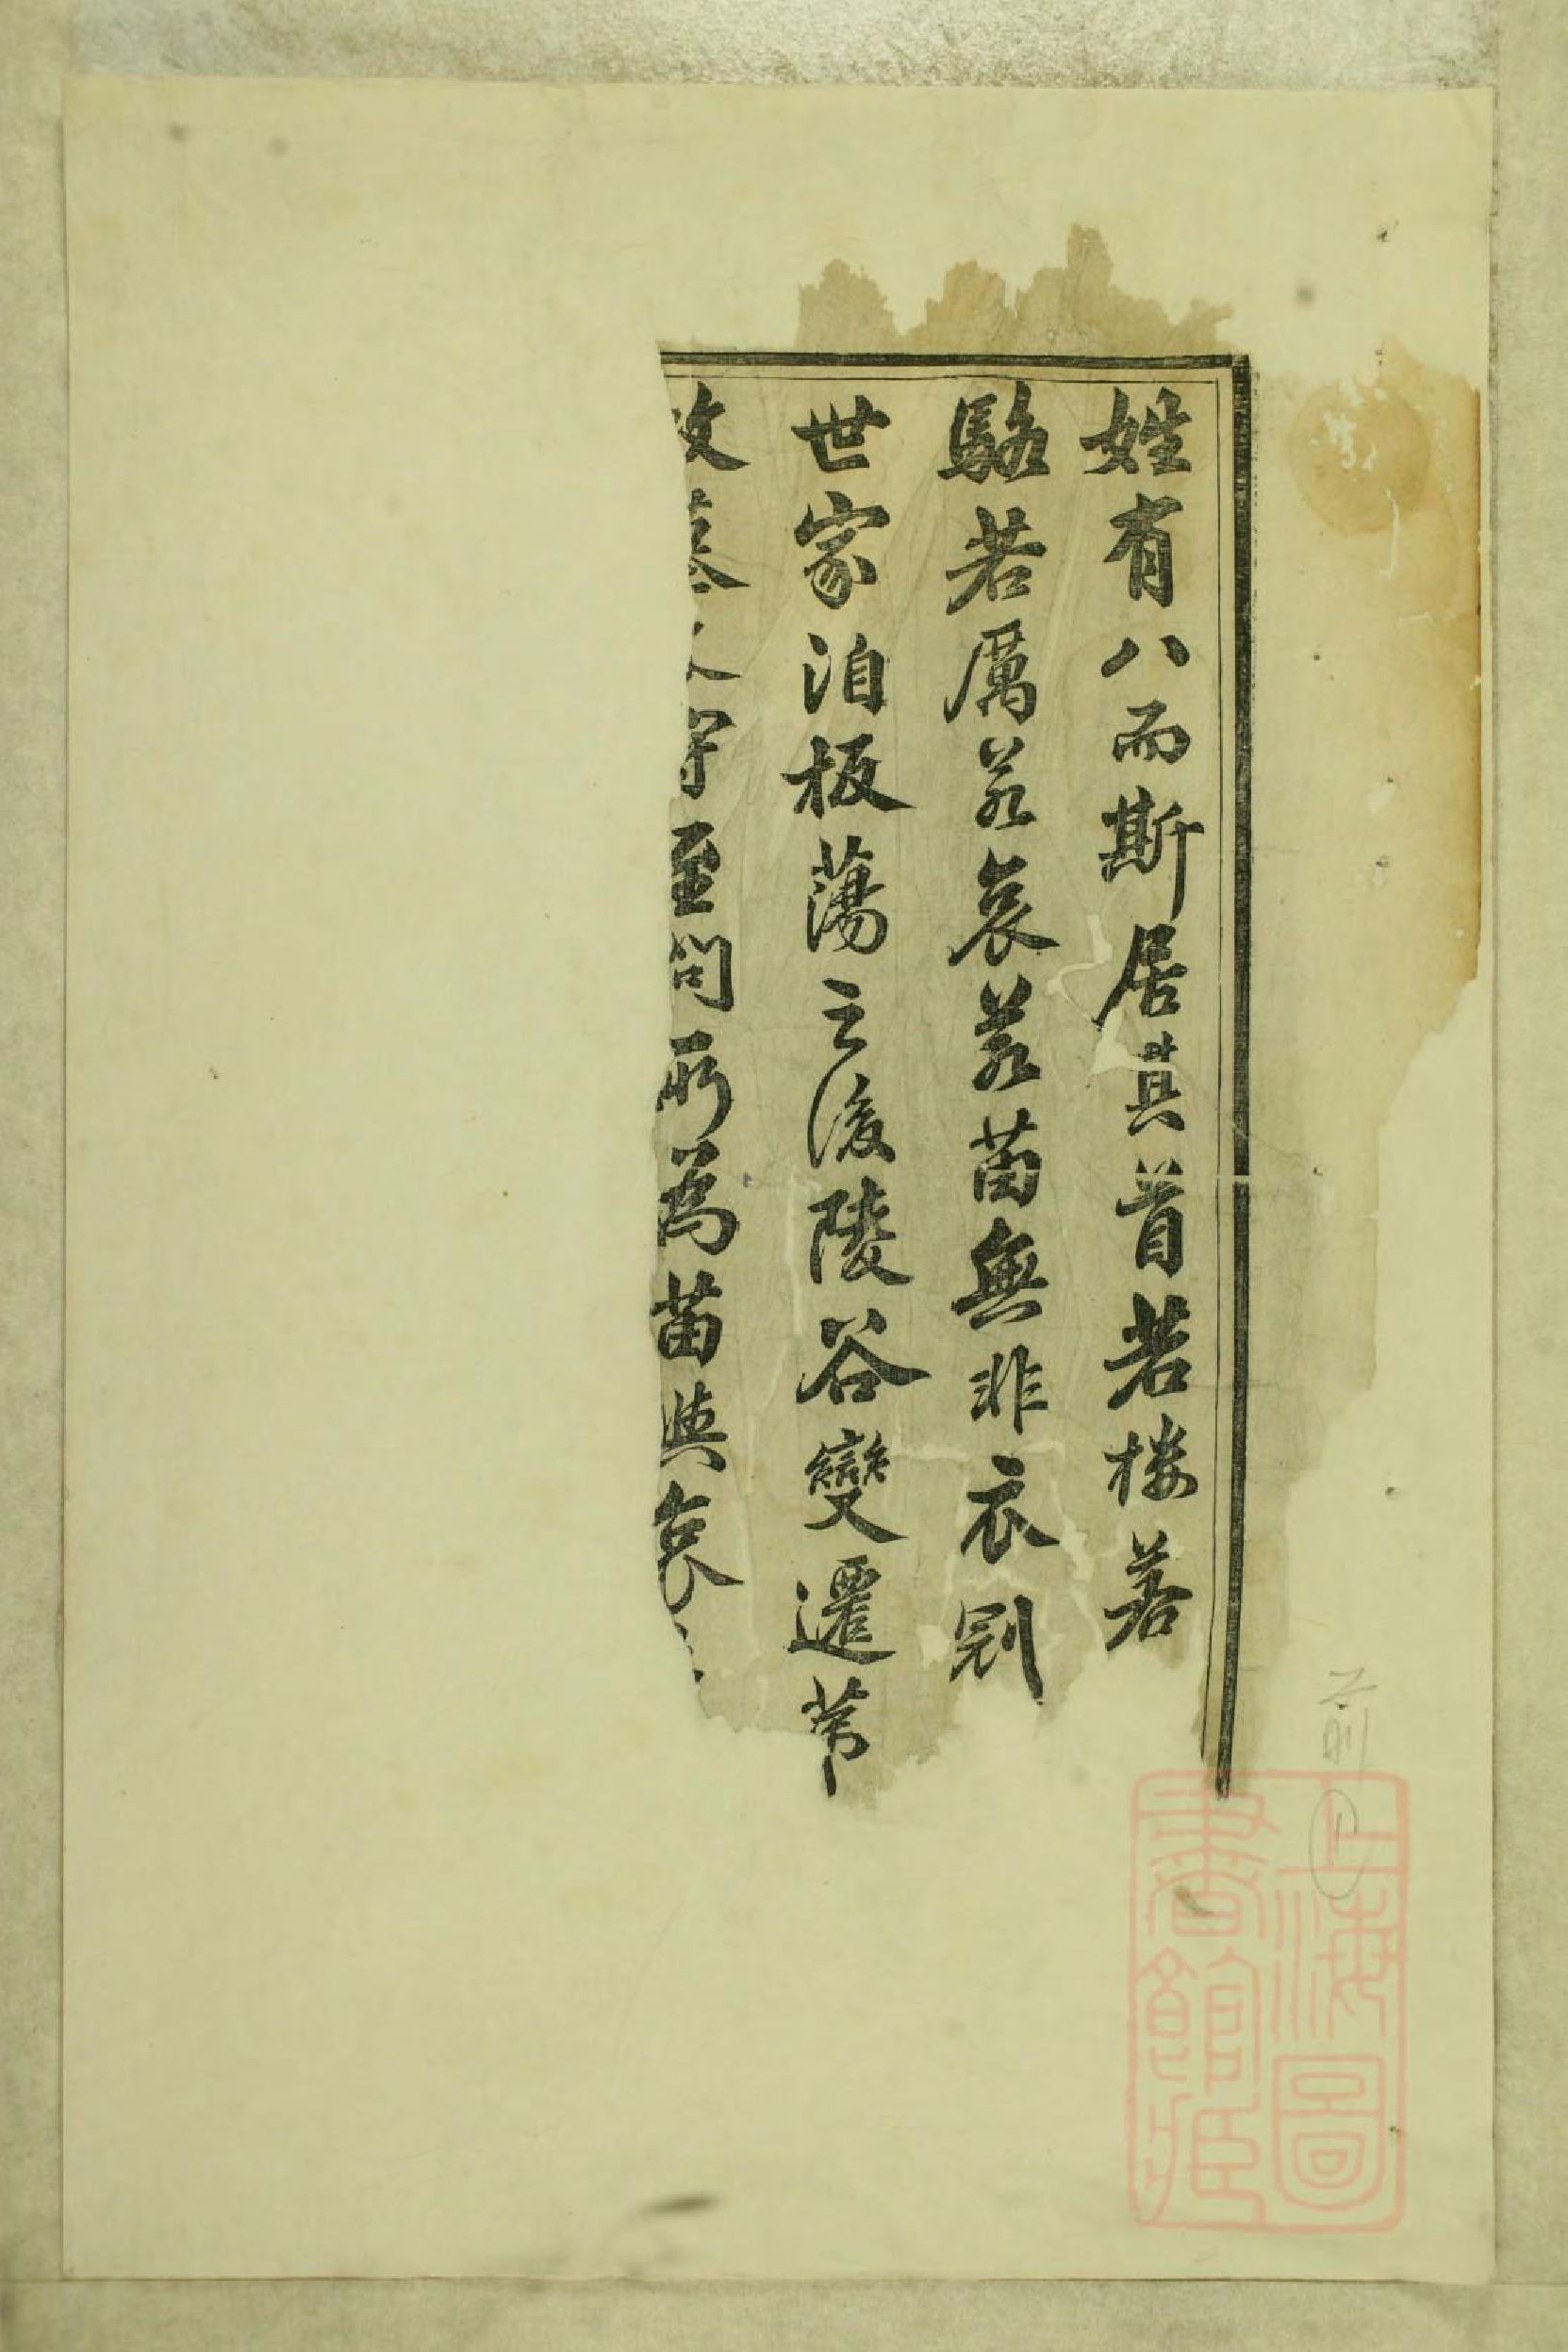 姓有八而斯居其首若樓若
駱若厲若袁若苗無非衣冠
世家洎板蕩之後陵谷變遷苐
至問所為苗與袁
上海圖
書館藏